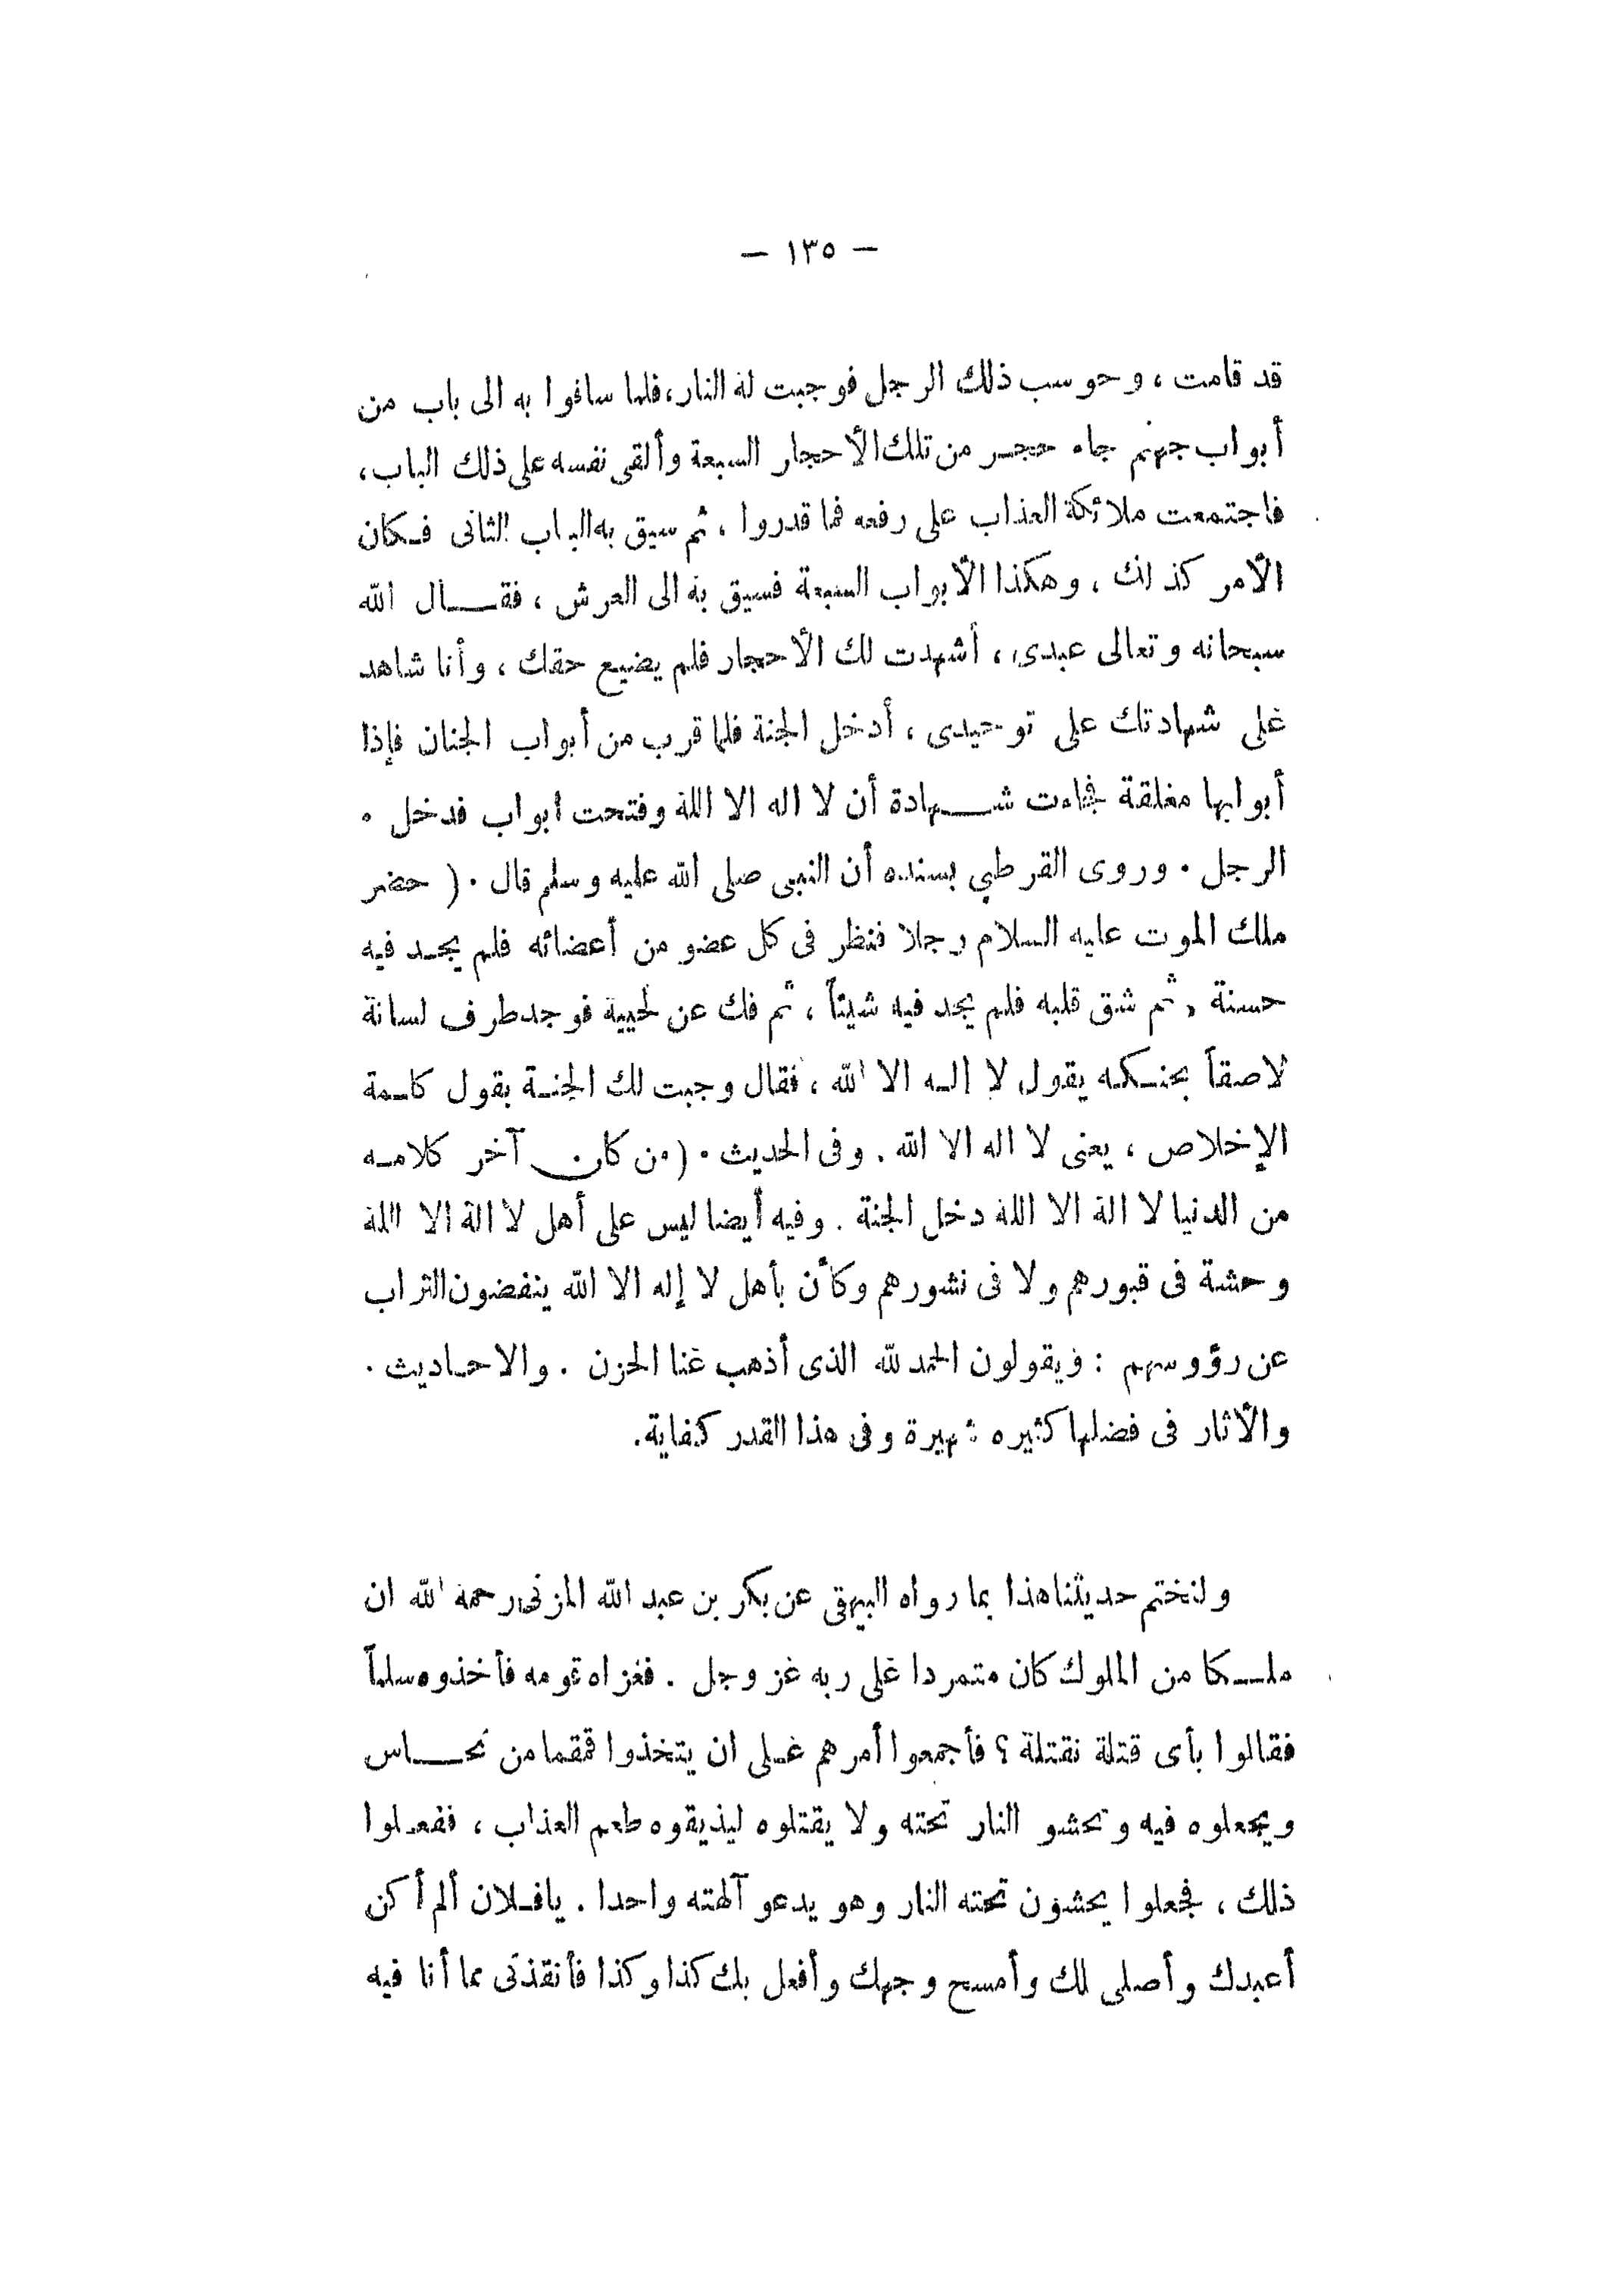 — ١٣٥ —
قد قامت ، وحوسب ذلك الرجل فوجبت له النار، فلما سافوا به الى باب من
أبواب جهنم جاه حجر من تلك الأحجار السبعة وألقى نفسه على ذلك الباب ،
فاجتمعت ملائكة العذاب على رفعه فما قدروا ، ثم سيق به الباب الثانى فكان
الأمر كذلك ، وهكذا الأبواب السبعة فسيق به الى العرش ، فقال الله
سبحانه وتعالى عبدى ، أشهدت لك الأحجار فلم يضيع حقك ، وأنا شاهد
على شهادتك على توحيدى ، أدخل الجنة فلما قرب من أبواب الجنان فإذا
أبوابها مغلقة فجاءت شهادة أن لا اله الا اللة وفتحت ابواب فدخل .
الرجل . وروى القرطبي بسنده أن النبى صلى الله عليه وسلم قال . ( حضر
ملك الموت عليه السلام رجلا فنظر فى كل عضو من أعضائه فلم يجد فيه
حسنة ، ثم شق قلبه فلم يجد فيه شيئاً ، ثم فك عن لحيية فوجد طرف لسانة
لاصقاً بحنكه يقول لا إله الا الله ، فقال وجبت لك الجنة بقول كلمة
الإخلاص ، يعنى لا اله الا الله . وفى الحديث . ( من كان آخر كلامه
من الدنيا لا الة الا اللة دخل الجنة . وفيه أيضا ليس على أهل لا الة الا اللة
وحشة فى قبورهم ولا فى نشورهم وكأن بأهل لا إله الا الله ينفضون التراب
عن رؤوسهم : ويقولون الحمد لله الذى أذهب غنا الحزن . والاحاديث .
والأثار فى فضلها كثيره شهيرة وفى هذا القدر كفاية .
ولنختم حديثنا هذا بما رواه البيهقى عن بكر بن عبد الله المزنى رحمة الله ان
ملكا من الملوك كان متمردا على ربه غز وجل . فغزاه قومه فأخذوه سلماً
فقالوا بأى قتلة نقتلة ؟ فأجمعوا أمرهم على ان يتخذوا قمقما من نحاس
ويجعلوه فيه وتحشو النار تحته ولا يقتلوه ليذيقوه طعم العذاب ، ففعلوا
ذلك ، فجعلوا يحشون تحته النار وهو يدعو آلهته واحدا . يا فلان ألم أكن
أعبدك وأصلى لك وأمسح وجهك وأفعل بك كذا وكذا فأنقذنى مما أنا فيه